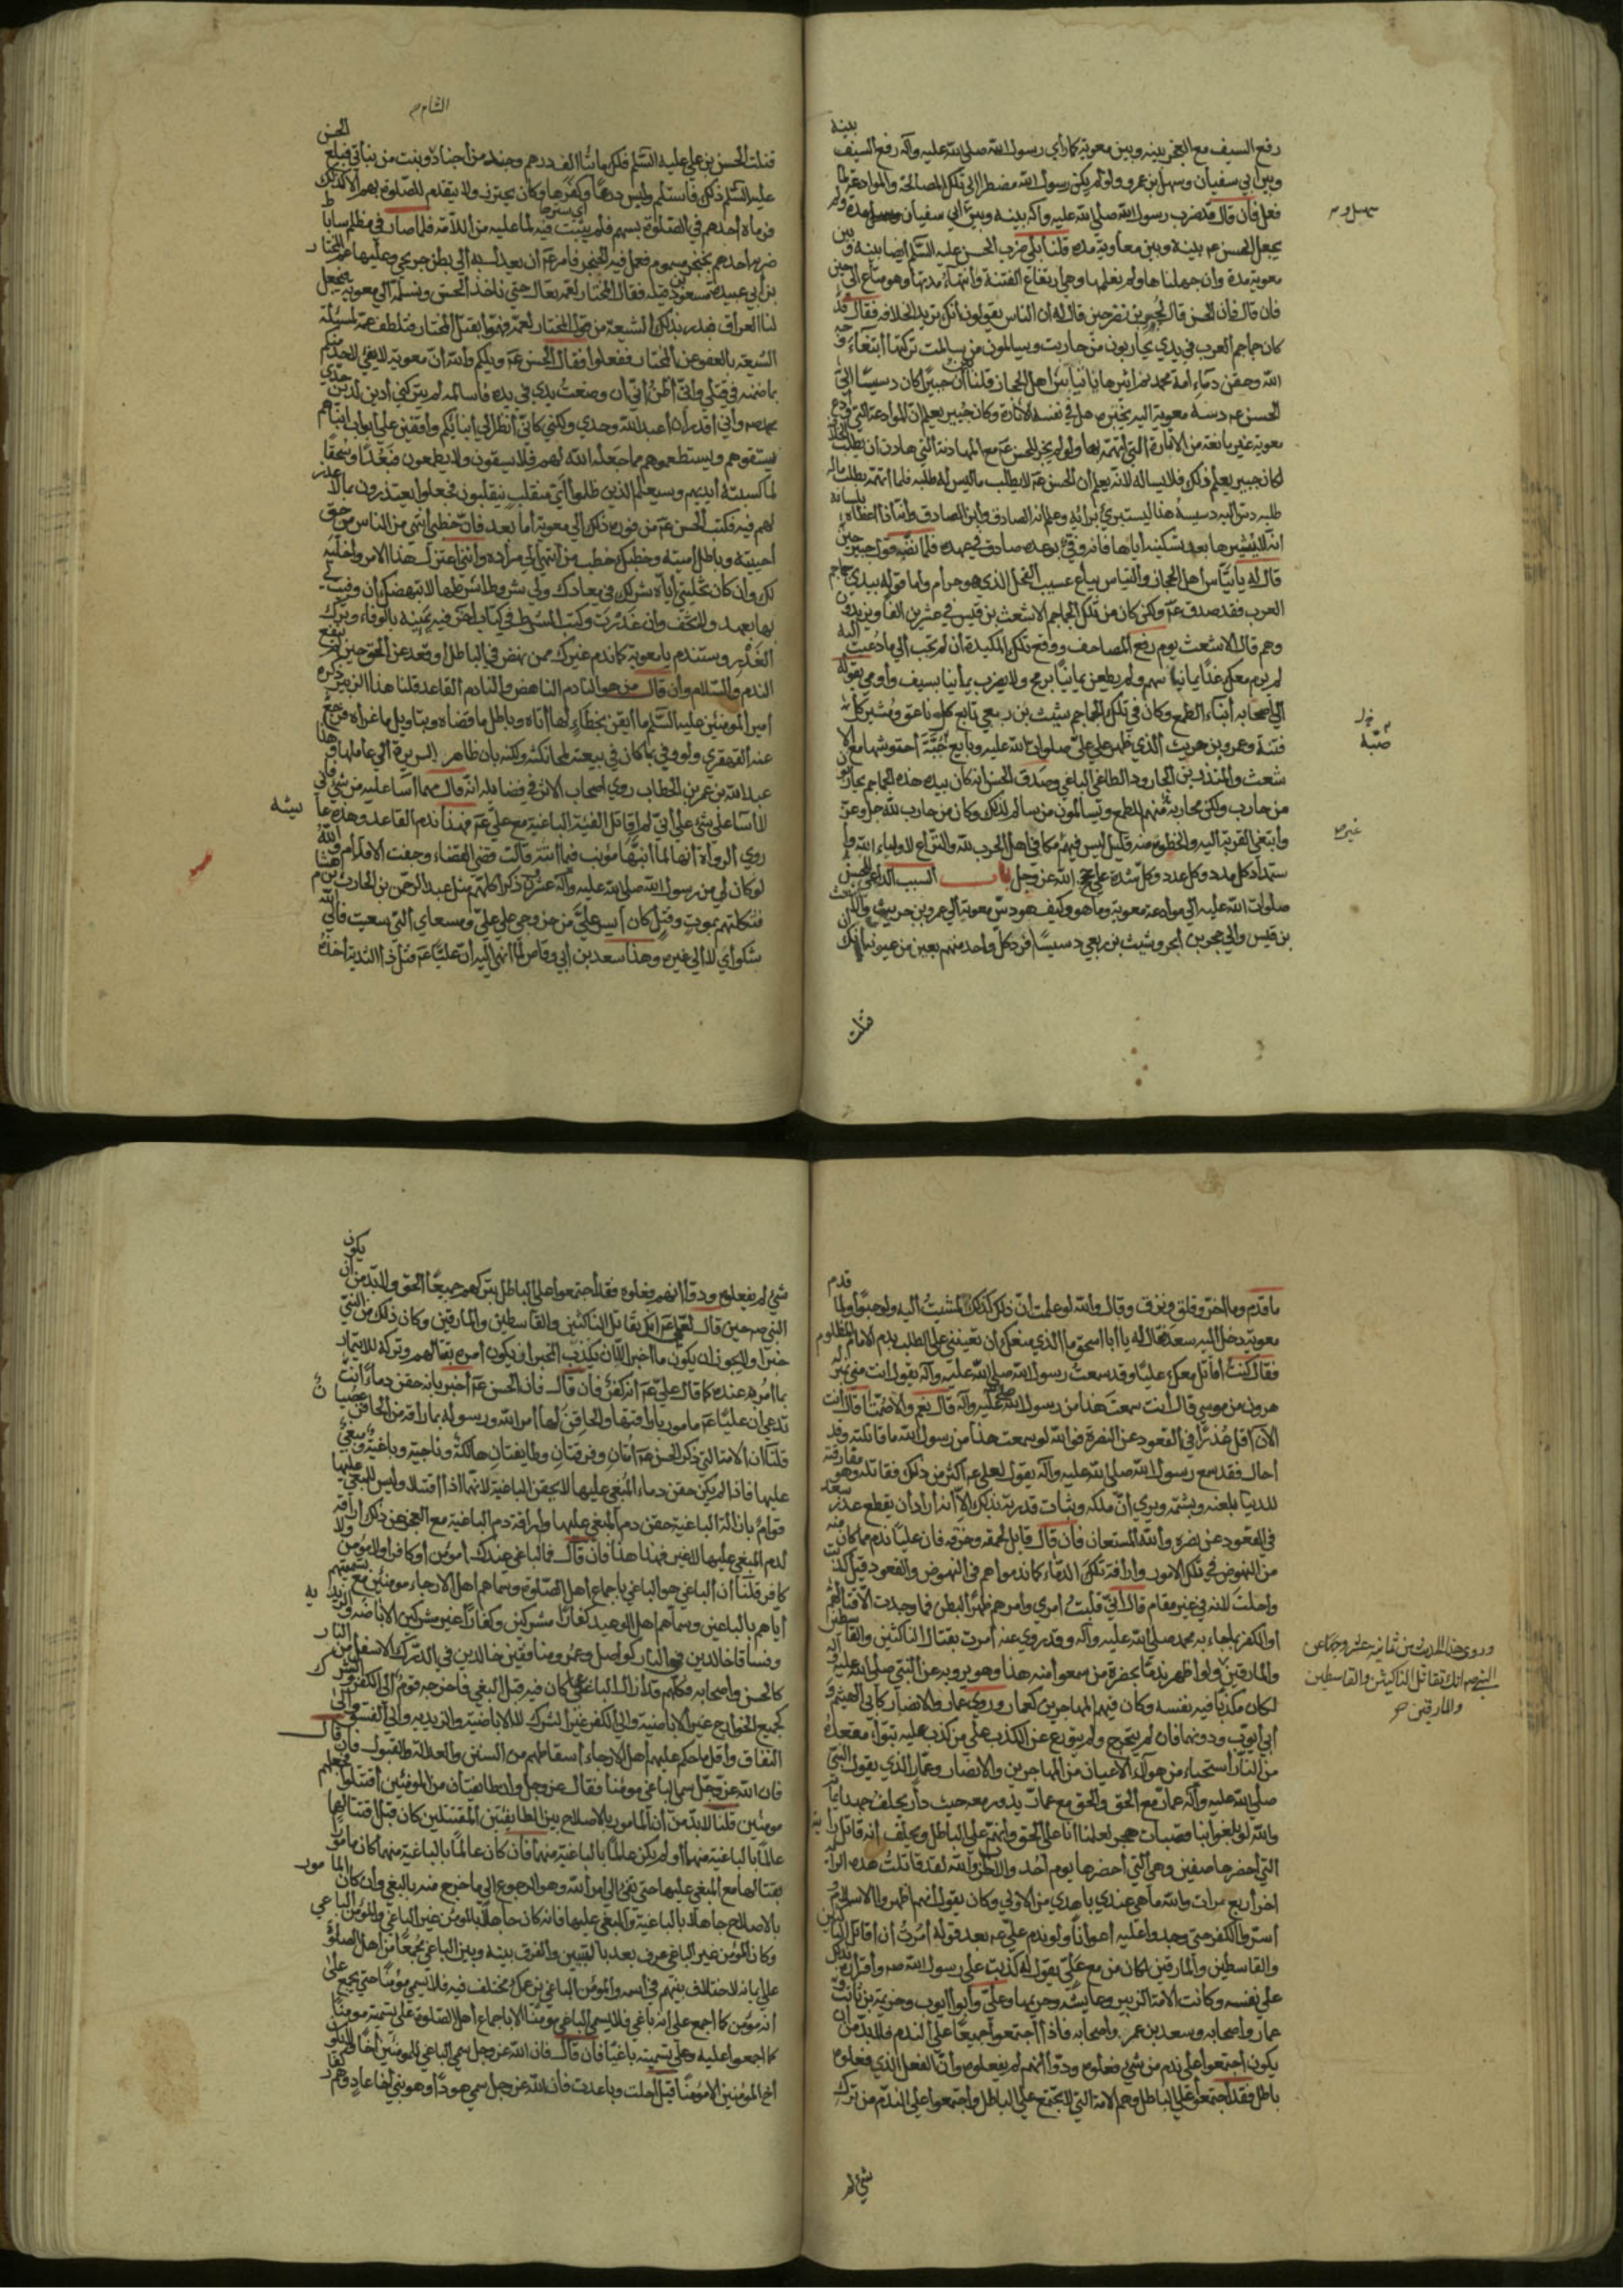 بينه
رفع السيف مع العجز بينه وبين معوية كما رأي رسول الله صلي الله عليه وآله رفع السيف
وبين أبي سفيان وسهل بن عمرو ولو لم يكن رسول الله مضطرا إلي تلك المصالحة والموادعة لما
فعل فأن قال قد ضرب رسول الله صلي الله عليه وآله بينه وبين أبي سفيان وسهل مدة ولم
يجعل الحسن عم بينه وبين معاوية مدة قلنا بلي ضرب الحسن عليه السلم أيضا بينه وبين
معوية مدة وان جهلناها ولم نعلمها وهي ارتفاع الفتنة وانتهاء مدتها وهو متاع الي حين
فان قال فان الحسن قال لجبير بن نفير حين قال له ان الناس يقولون انك تريد الخلافه فقال قد
كان جماجم العرب في يدي يحاربون من حاربت ويسالمون من سالمت تركتها ابتغاء وجه
الله وحقن دماء أمة محمد ثم اثيرها يا تياس اهل الحجاز قلنا أن جبيرا كان دسيسا الي
الحسن عم دسه معوية اليه ليختبره هل في نفسه الاثارة وكان جبير يعلم ان الموادعة التي وادع
معوية غير مانعة من الاثارة التي اتهمه بها ولو لم يجز للحسن عم مع المهادنة التي هادن ان يطلب الخلافة
لكان جبير يعلم ذلك فلا يساله لانه يعلم أن الحسن عم لا يطلب ما ليس له طلبه فلما اتهمه بطلب ما له
طلبه دس اليه دسيسه هذا ليستبري برائه وعلم انه الصادق وابن الصادق وانه اذا اعطاه بلسانه
انه لا يثيرها بعد تسكينه أياها فانه وفي بوعده صادق في عهده فلما نقصه قول جبير حين
قال له يا تياس اهل الحجاز والتياس بياع عسب الفحل الذي هو حرام واما قوله بيدي جماجم
العرب فقد صدق عم ولكن كان من تلك الجماجم الاشعث بن قيس في عشرين الفا ويزيدون
وهم قال الاشعث يوم رفع المصاحف ووقع تلك المكيدة أن لم تجب الي ما دعيت اليه
لم يرم معك غدا يمانيا بسهم ولم يطعن يمانيا برمح ولا يضرب يمانيا بسيف واومي بقوله
الي اصحابه أبناء الطمع وكان في تلك الجماجم شبث بن ربعي تابع كل ناعق ومثير كل
فتنة وعمرو بن حريث الذي ظهر علي علي صلوات الله عليه وبايع ضبة احتوشها مع الا
شعث والمنذر بن الجارود الطاغي الباغي وصدق الحسن انه كان بيده هذه الجماجم يحاربون
من حارب ولكن محاربة منهم للطمع ويسالمون من سالم لذلك وكان من حارب لله جل وعز
وابتغي القربة اليه والحظوة منه قليل ليس فيهم مكافي اهل الحرب لله والنزاع لاولياء الله وا
ستمداد كل مدد وكل عدد وكل شدة علي حجج الله عز وجل باب السبب الداعي للحسن
صلوات الله عليه الي موادعة معوية وما هو وكيف هو دس معوية الي عمرو بن حريث والاشعث
بن قيس والي حجر بن أبجر وشبث بن ربعي دسيسا افرد كل واحد منهم بعين من عيونه أنك ان
قتلت
سهل و م
ضبة
غيره
الشام م
قتلت الحسن بن علي عليه السلم فلك مائتا الف درهم وجند من اجناد وبنت من بناتي فبلغ الحسن
عليه السلم ذلك فاستلم ولبس درعا وكفرها وكان يحترز ولا يتقدم للصلوة بهم الا كذلك
أي سترها
فرماه أحدهم في الصلوة بسهم فلم يثبت فيه لما عليه من اللامة فلما صار في مظلم ساباط
ضربه احدهم بخنجر مسموم فعمل فيه الخنجر فامر عم ان يعدل به الي بطن جريحي وعليها عم المختار
بن أبي عبيدة مسعود بن قيله فقال المختار لعمه تعال حتي ناخذ الحسن ونسلمه الي معوية فيجعل
لنا العراق فنذر بذلك الشيعة من قول المختار لعمه فهموا بقتل المختار فتلطف عمه لمسئلة
الشيعة بالعفو عن المختار ففعلوا فقال الحسن عم ويلكم والله أن معوية لا يفي لاحد منكم
بما ضمنه في قتلي واني أظن أني ان وضعت يدي في يده فأسالمه لم يتركني أدين لدين جدي
محمد صم واني أقدر أن أعبد الله وحدي ولكني كأني أنظر الي أبنائكم واقفين علي أبواب أبنائهم
يستسقونهم ويستطعمونهم بما جعله الله لهم فلا يسقون ولا يطعمون فبعدا وسحقا
لما كسبته أيديهم وسيعلم الذين ظلموا أي منقلب ينقلبون فجعلوا يعتذرون بما لا عذر
لهم فيه فكتب الحسن عم من فوره ذلك الي معوية أما بعد فان خطبي انتهي من الناس من حق
أحييته وباطل أميته وخطبك خطب من انتهي الي مراده وانني اعتزل هذا الامر واخليه
لك وان كان تخليتي أياه شر لك في معادك ولي شروط اشترطها لا تبهضك ان وفيت لي
بها بعهد ولا تخف وان غدرت وكتب الشرط في كتاب اخر فيه يمنيه بالوفاء وترك
الغدر وستندم يا معوية كما ندم غيرك ممن نهض في الباطل او قعد عن الحق حين لم ينفع
الندم والسلام وأن قال من هو النادم الناهض والنادم القاعد قلنا هذا الزبير ذكره
أمير المؤمنين عليه السلم ما ايقن بخطاء لها أتاه وباطل ما قضاه وبتاويل ما عزاه فرجع
عنه القهقري ولو وفي بما كان في بيعته لمحا نكثه ولكنه بان ظاهر السريرة الي عالمها وهذا
عبد الله بن عمر بن الخطاب روي اصحاب الاثر في فضايله انه قال مهما آسا عليه من شي فاني
لا آسا علي شي علي أني لم أقاتل الفئة الباغية مع علي عم فهذا ندم القاعد وهذه عا ئيشه
روي الرواة أنها لما أنبها مؤنب فيما أتته قالت قضي القضاء وجفت الاقلام والله
لو كان لي من رسول الله صلي الله عليه وآله عشرون ذكرا كلهم مثل عبد الرحمن بن الحارث بن هشام
فثكلتهم بموت وقتل كان أيسر علي من خروجي علي علي ومسعاي التي سعيت فالي الله
شكواي لا الي غيره وهذا سعد بن ابي وقاص لما انهي اليه أن عليا عم قتل ذا الثدية أخذه
قدم
ما قدم وما اخر وقلق ونزق وقال والله لو علمت أن ذلك كذلك لمشيت اليه ولو حبوا ولما
معوية دخل اليه سعد فقال له يا ابا اسحق ما الذي منعك ان تعينني علي الطلب بدم الامام المظلوم
فقال كنت اقاتل معك عليا وقد سمعت رسول الله صلي الله عليه وآله يقول انت مني بمنزلة
هرون من موسي قال انت سمعت هذا من رسول الله صلي الله عليه وآله قال نعم والا صمتا قال انت
الان اقل عذرا في القعود عن النصرة فوالله لو سمعت هذا من رسول الله ما قاتلته وقد
احال فقد سمع رسول الله صلي الله عليه وآله يقول لعلي عم اكثر من ذلك فقاتله وهو بعد مفارقته
للدنيا يلعنه ويشتمه ويري أن ملكه وثبات قدرته بذلك الا انه أراد أن يقطع عذر سعد
في القعود عن نصره والله المستعان فأن قال قايل لحمقه وخرقه فان عليا ندم مما كان منه
من النهوض في تلك الامور وارافة تلك الدماء كما ندموا هم في النهوض والقعود قيل كذبت
واحلت لانه في غير مقام قال أني قلبت أمري وأمرهم ظهرا لبطن فما وجدت الا قتالهم
أو الكفر بما جاء به محمد صلي الله عليه وآله وقد روي عنه أمرت بقتال الناكثين والقاسطين
والمارقين ولو اظهر ندما بحضرة من سمعوا منه هذا وهو يرويه عن النبي صلي الله عليه وآله
لكان مكذبا فيه نفسه وكان فيهم المهاجرين كعمار وروي عمار والانصار كأبي الهيثم و
أبي أيوب ودونهما فان لم يتحرج ولم يتورع عن الكذب علي من كذب عليه تبوا مقعده
من النار استحياء من هولاء الاعيان من المهاجرين والانصار وعمار الذي يقول النبي
صلي الله عليه وآله عمار مع الحق والحق مع عمار يدور معه حيث دار يحلف جهد ايمانه
والله لو بلغوا بنا قصبات هجر لعلمنا أنا علي الحق وأنهم علي الباطل ويحلف أنه قاتل راية
التي احضرها صفين وهي التي أحضرها يوم أحد والاحزاب والله لقد قاتلت هذه الراية
اخر أربع مرات والله ما هي عندي باهدي من الاولي وكان يقول أنهم اظهروا الاسلام
أسروا الكفر حتي وجدوا عليه أعوانا ولو ندم علي عم بعد قوله أمرت أن اقاتل الناكثين
والقاسطين والمارقين لكان من مع علي يقول له كذبت علي رسول الله صم وأقراره بذلك
علي نفسه وكانت الامة الزبير وعايشة وحزبهما وعلي وأبو أيوب وخزيمة بن ثابت و
عمار واصحابه وسعد بن عمر واصحابه فاذا اجتمعوا جميعا علي الندم فلا بد من ان
يكون اجتمعوا علي ندم من شي فعلوه ودوا أنهم لم يفعلوه وأن الفعل الذي فعلوه
باطل فقد اجتمعوا علي الباطل وهم الامة التي لا تجتمع علي الباطل واجتمعوا علي الندم من ترك
شي لم
وروي هذا الحديث من ثمانية عشر وجها عن
النبي صم انك تقاتل الناكثين والقاسطين
والمارقين
شي لم يفعلوه ودوا أنهم فعلوه فقد اجتمعوا علي الباطل بتركهم جميعا الحق ولا بد من ان يكون
النبي صم حين قال لعلي عم انك تقاتل الناكثين والقاسطين والمارقين وكان ذلك من النبي
خبرا ولا يجوز أن يكون ما أخبر الا ان يكذب الخبر أو يكون أمره بقتالهم وتركه للايتمار
بما أمر به عنده كما قال علي عم أنه كفر فان قال فان الحسن عم أخبر بانه حقن دماء انت
تدعي ان عليا عم مامور باراقتها والحاقن لها أمر الله ورسوله باراقته من الحاقن عصيان
قلنا ان الامة التي ذكر الحسن عم أمتان وفرقتان وطايفتان هالكة وناجية وباغية ومبغي
عليها فاذا لم يكن حقن دماء المبغي عليها الا بحقن الباغية لانهما اذا اقتتلا وليس للمبغي عليها
قوام بازالة الباغية حقن دم المبغي عليها وارافة دم الباغية مع العجز عن ذلك اراقة
لدم المبغي عليها لا غير فهذا هذا فان قال فما الباغي عندك أمؤمن أو كافر أو لا مؤمن ولا
كافر قلنا ان الباغي هو الباغي باجماع اهل الصلوة وسماهم اهل الارجاء مومنين مع تسميتهم
أياهم بالباغين وسماهم أهل الوعيد كفارا مشركين وكفارا غير مشركين كالاباضية والزيدية
وفساقا خالدين في النار كواصل وعمرو ومنافقين خالدين في الدرك الاسفل من النار
كالحسن وأصحابه فكلهم قد أزال الباغي عما كان فيه قبل البغي فاخرجه قوم الي الكفر والشرك
كجميع الخوارج غير الاباضية والي الكفر غير الشرك كالاباضية والزيدية والي الفسق والي
النفاق وأقل ما حكم عليهم أهل الارجاء أسقاطهم من السنن والعدالة والقبول فان قال
فان الله عز وجل سمي الباغي مومنا فقال عز وجل وان طايفتان من المؤمنين اقتتلوا فجعلهم
مومنين قلنا لا بد من أن المامور بالاصلاح بين الطايفتين المقتتلين كان قبل اقتتالهما
عالما بالباغية منهما أو لم يكن عالما بالباغية منهما فأن كان عالما بالباغية منهما كان مامورا
بقتالها مع المبغي عليها حتي تفي الي امر الله وهو الرجوع الي ما خرج منه بالبغي وأن كان المامور
بالاصلاح جاهلا بالباغية والمبغي عليها فانه كان جاهلا بالمؤمن غير الباغي والمؤمن الباغي
وكان المؤمن غير الباغي عرف بعد التبيين والفرق بينه وبين الباغي مجمعا من أهل الصلوة
علي ايمانه لا اختلاف بينهم في أسمه والمؤمن الباغي بزعمك مختلف فيه فلا يسمي مؤمنا حتي يجمع علي
انه مؤمن كما أجمع علي أنه باغي فلا يسمي الباغي مومنا الا باجماع أهل الصلوة علي تسميته مومنا
كما اجمعوا عليه وعلي تسميته باغيا فان قال فان الله عز وجل سمي الباغي للمؤمنين أخا ولا يكون
أخ المؤمنين الا مؤمنا قيل احلت وباعدت فان الله عز وجل سمي هودا وهو نبي أخا عاد وهم كفار